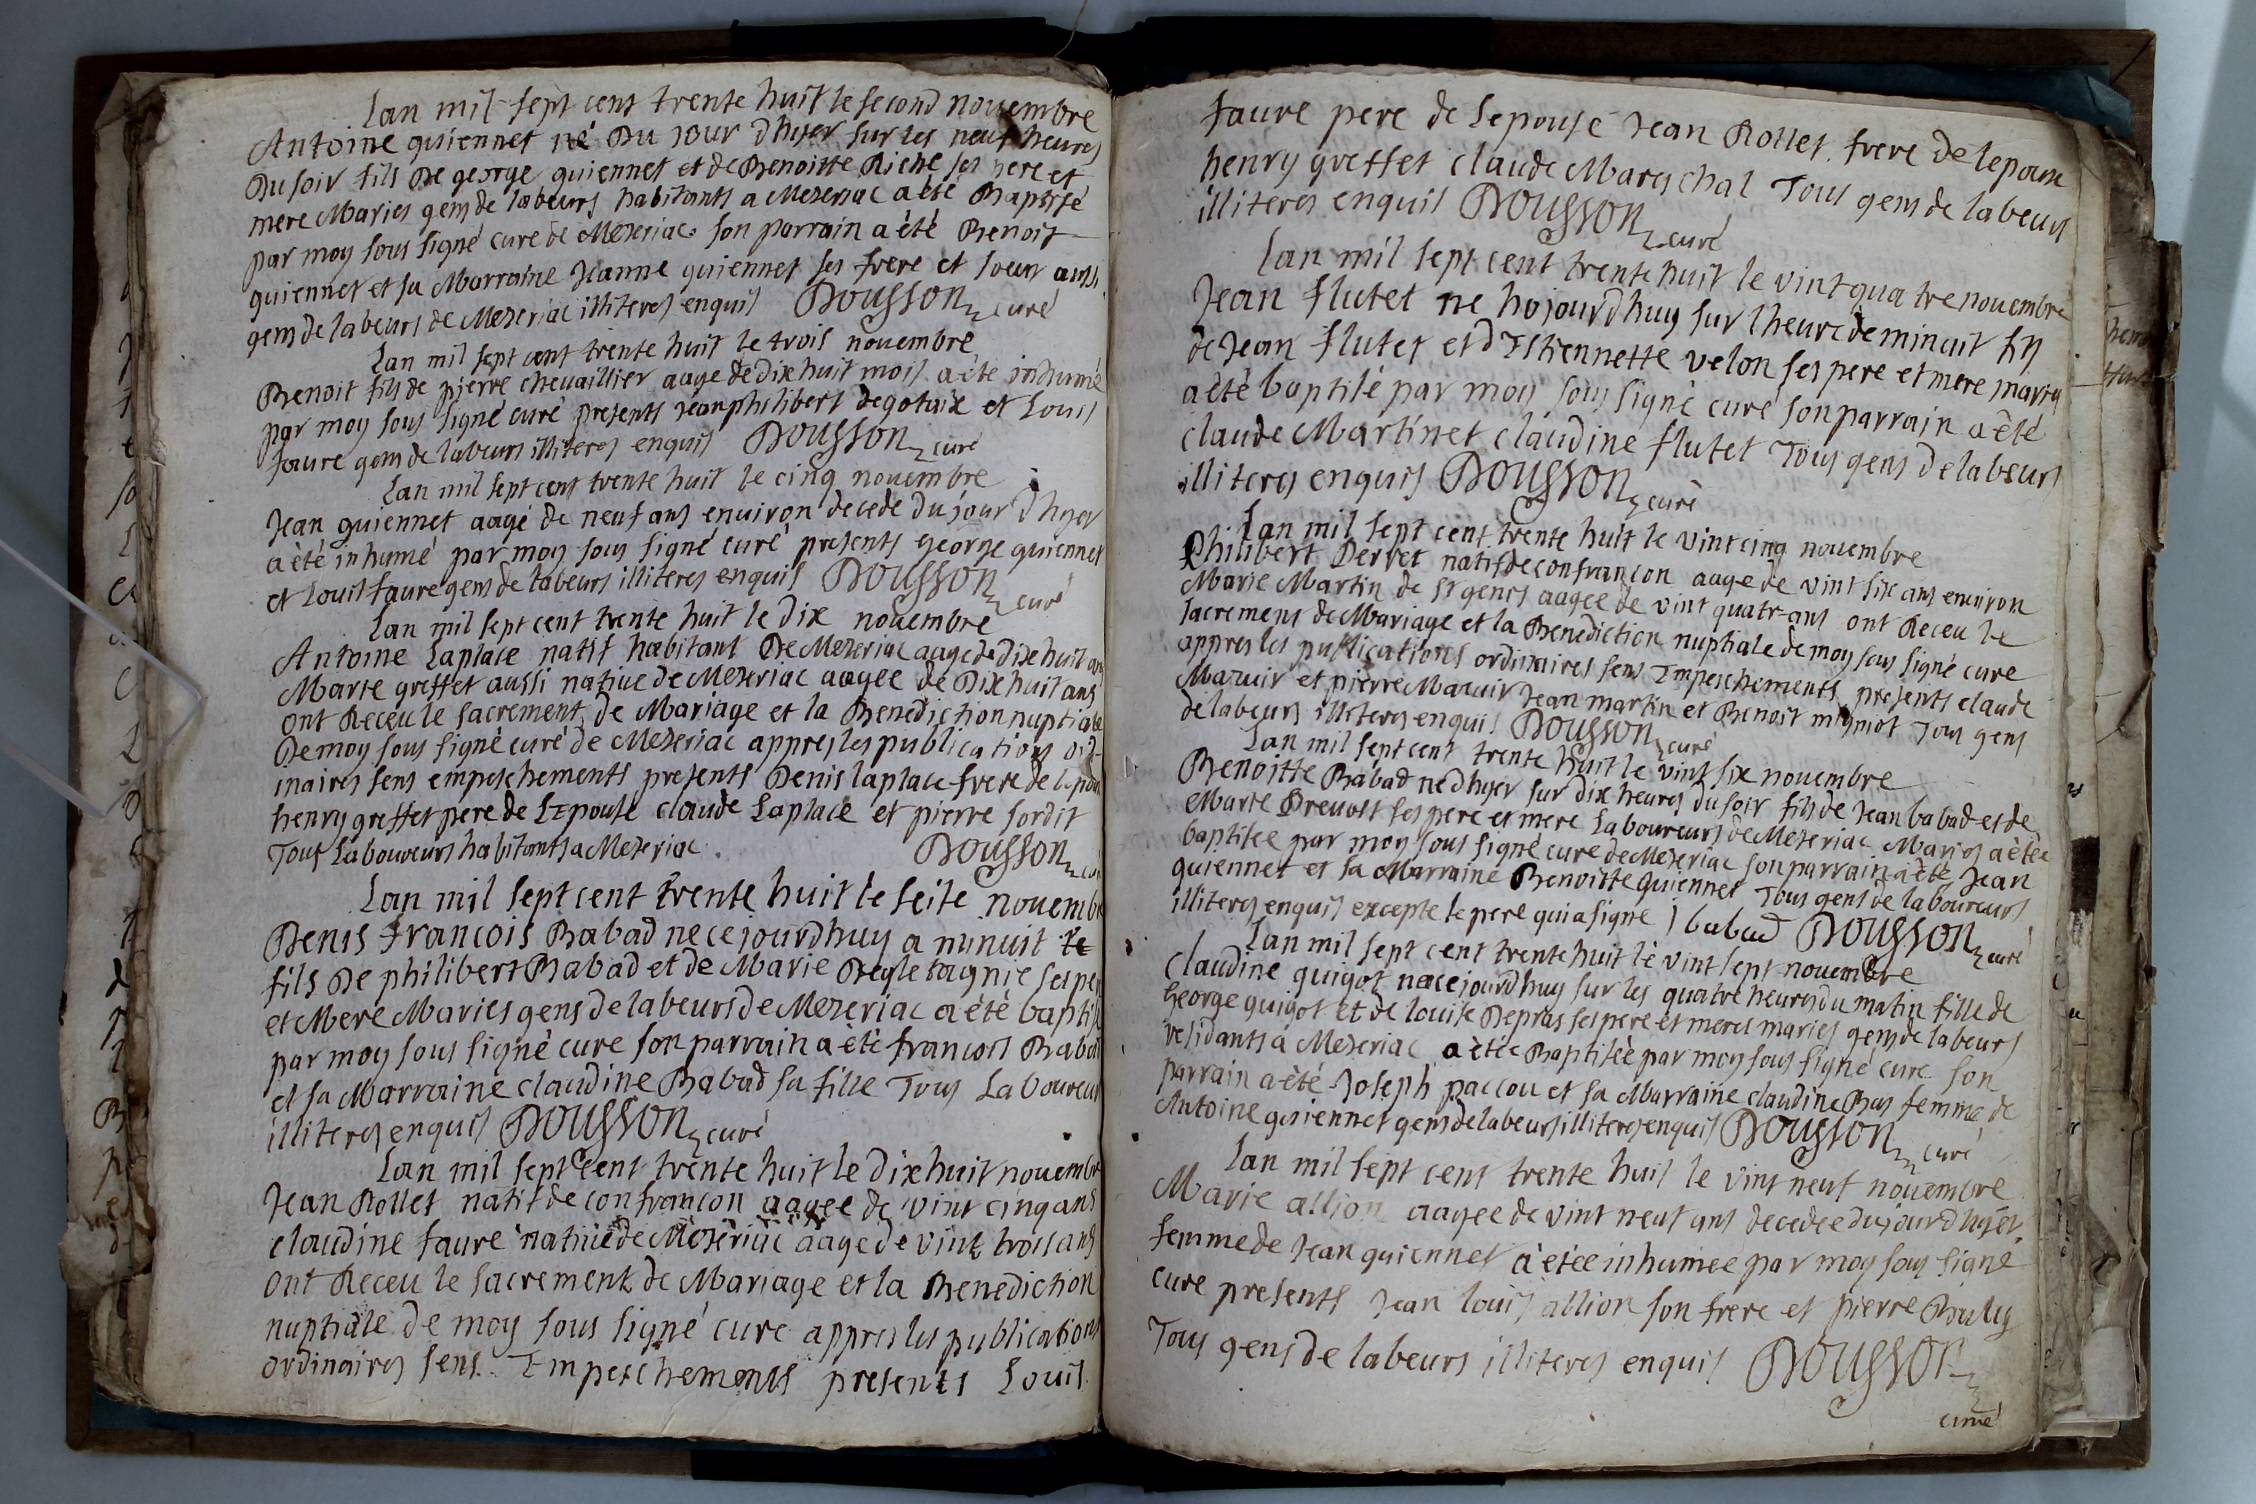 Lan mil sept cent trente huit le second nouembre
Antoine guiennet né Du jour dhyer sur les neuf heures
Du soir fils De george guiennet et de Benoitte Riche ses pere et
mere Maries gens de labeurs habitants a Mezeriac a été Baptisé
par moy sous signé curé de Mezeriac son parrain a été Benoit
guiennet et sa Marraine Jeanne guiennet ses frere et soeur aussi
gens de labeurs de Mezeriac illiteres enquis Dousson curé
Lan mil sept cent trente huit le trois nouembre
Benoit fils de pierre cheuaillier aage de dixhuit mois a été inhumé
par moy sous signé curé presents jean philibert degotaix et Louis
faure gens de labeurs illiteres enquis Dousson curé
Lan mil sept cent trente huit le cinq nouembre
Jean guiennet aagé de neuf ans enuiron decede du jour dhyer
a été inhumé par moy sous signé curé presents george guiennet
et Louis faure gens de labeurs illiteres enquis Dousson curé
Lan mil sept cent trente huit le dix nouembre
Antoine Laplace natif habitant De Mezeriac aage de dixhuit ans
Marie greffet aussi natiue de Mezeriac aagee de Dixhuit ans
ont Receu le sacrement de Mariage et la Benediction nuptiale
De moy sous signé curé de Mezeriac appres les publications ord-
inaires sens empeschements presents Denis laplace frere de lepoux
henry greffet pere de LEpouse claude Laplace et pierre sordit
Tous Laboureurs habitants a Mezeriac. Dousson
Lan mil sept cent trente huit le seise nouembre
Denis francois Babad ne cejourdhuy a minuit le
fils De philibert Babad et de Marie ses pere
et Mere Maries gens de labeurs de Mezeriac a été baptisé
par moy sous signé cure son parrain a été francois Babad
et sa Marraine claudine Babad sa fille Tous Laboureurs
illiteres enquis Dousson curé
Lan mil sept cent trente huit le dixhuit nouembre
Jean Rollet natif de confrancon aagee de vint cinq ans
claudine faure natiue de Mezeriac aage de vint trois ans
ont Receu le sacrement de Mariage et la Benediction
nuptiale de moy sous signé cure appres les publications
ordinaires sens Empeschements presents Louis
faure pere de lepouse Jean Rollet frere de lepoux
henry greffet claude Marychal Tous gens de labeurs
illiteres enquis Dousson curé
Lan mil sept cent trente huit le vint quatre nouembre
Jean flutet ne hojourdhuy sur lheure de minuit fils
de Jean flutet et dEstiennette velon ses pere et mere maries
a été baptisé par moy sous signé curé son parrain a été
claude Martinet claudine flutet Tous gens de labeurs
illiteres enquis Dousson curé
Lan mil sept cent trente huit le vint cinq nouembre
Philibert Perret natif de confrancon aage de vint six ans enuiron
Marie Martin de st genis aagee de vint quatr-ans ont Receu le
sacrement de Mariage et la Benediction nuptiale de moy sous signé cure
appres les publications ordinaires sens Empeschements presents claude
Maruir et pierre Maruir Jean martin et Benoit migniot Tous gens
de labeurs illiteres enquis Dousson curé
Lan mil sept cent trente huit le vint six nouembre
Benoitte Babad ne dhyer sur dix heures du soir fils de Jean babad et de
Marie Preuost ses pere et mere Laboureurs de Mezeriac Maries a étée
baptisee par moy sous signé cure de Mezeriac son parrain a été Jean
guiennet et sa Marraine Benoitte guiennet Tous gens de laboureurs
illiteres enquis excepte le pere qui a signe J babad Dousson curé
Lan mil sept cent trente huit le vint sept nouembre
claudine guigot nacejourdhuy sur les quatre heures du matin fille de
George guigot et de louise Depras ses pere et meres maries gens de labeurs
residants a Mezeriac a étée Baptisée par moy sous signé cure son
parrain a été Joseph paccou et sa Marraine claudine Bas femme de
Antoine guiennet gens de labeurs illiteres enquis Dousson curé
Lan mil sept cent trente huit le vint neuf nouembre
Marie allion aagee de vint neuf ans decedee du jour dhyer
femme de Jean guiennet a étée inhumee par moy sous signé
cure presents Jean louis allion son frere et pierre Bouly
Tous gens de labeurs illiteres enquis Dousson
curé